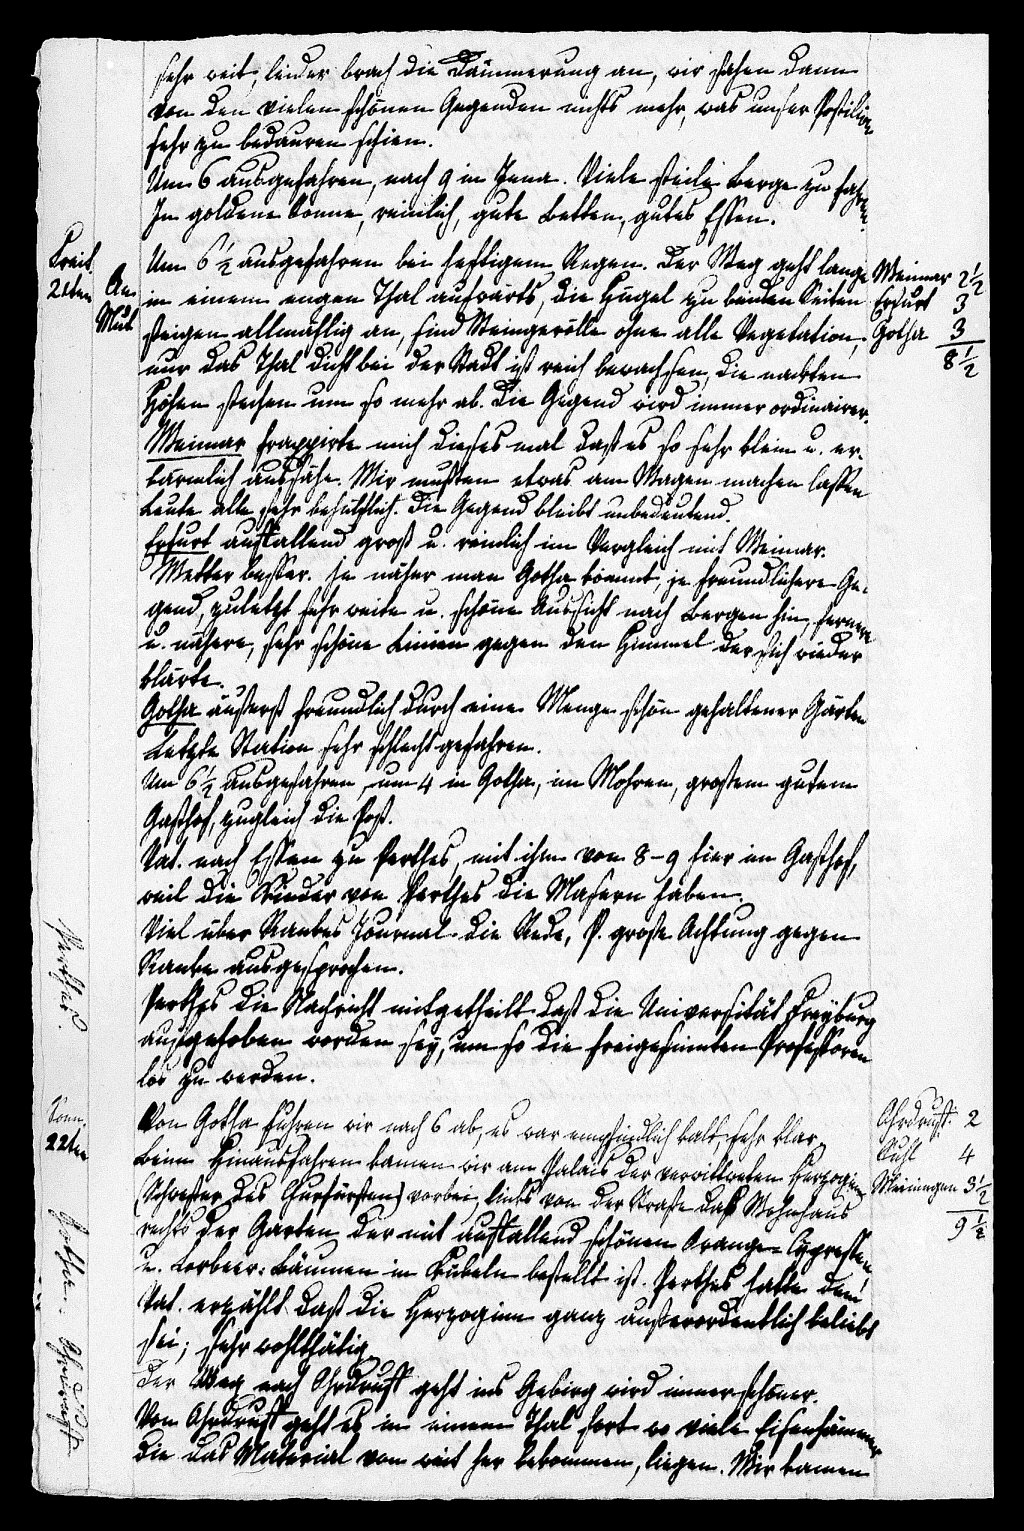 sehr weit, leider brach die Dämmerung an, wir sahen dann
von den vielen schönen Gegenden nichts mehr, was unser Postilion
sehr zu bedauren schien.
Um 6 ausgefahren, nach 9 in Jena. Viele steile Berge zu fahren.
In goldene Sonne, reinlich, gute Betten, gutes Essen.
Freit.
21ten
An
Mut
Um 6 1/2 ausgefahren bei heftigem Regen. Der Weg geht lange
in einem engen Thal aufwärts, die Hügel zu beiden Seiten
steigen allmählig an, sind Steingerölle ohne alle Vegetation,
nur das Thal dicht bei der Stadt ist reich bewachsen, die nackten
Höhen stechen um so mehr ab. Die Gegend wird immer ordinairer.
Weimar 2 1/2
Erfurt 3
Gotha 3
8 1/2
Weimar frappirte mich dieses mal daß es so sehr klein u. er-
bärmlich aussähe. Wir mußten etwas am Wagen machen lassen
Leute alle sehr behülflich. Die Gegend bleibt unbedeutend.
Erfurt auffallend groß u. reinlich im Vergleich mit Weimar.
Wetter besser. Je näher man Gotha kommt, je freundlichere Ge-
gend, zuletzt sehr weite u. schöne Aussicht nach Bergen hin, fernere
u. nähere, sehr schöne Linien gegen den Himmel der sich wieder
klärte.
Gotha äußerst freundlich durch eine Menge schön gehaltener Gärten
Letzte Station sehr schlecht gefahren.
Um 6 1/2 ausgefahren, um 4 in Gotha, im Mohren, großem gutem
Gasthof, zugleich die Post.
Vat. nach Essen zu Perthes, mit ihm von 8-9 hier im Gasthof,
weil die Kinder von Perthes die Masern haben.
Viel über Rankes Journal die Rede, P. große Achtung gegen
Ranke ausgesprochen.
Perthes.
Perthes die Nachricht mitgetheilt daß die Universität Freyburg
aufgehoben worden sey, um so die freigesinnten Professoren
los zu werden.
Sonn.
22ten
Von Gotha fuhren wir nach 6 ab, es war empfindlich kalt, sehr klar,
Beim Hinausfahren kamen wir am Palais der verwittweten Herzoginn
(Schwester des Churfürsten) vorbei, links von der Straße das Wohnhaus
rechts der Garten, der mit auffallend schönen Orange- Cypressen
u. Lorbeer-Bäumen in Kübeln bestellt ist. Perthes hatte dem
Vat. erzählt daß die Herzoginn ganz außerordentlich beliebt
sei; sehr wohlthätig.
Ohrdruff. 2
Suhl 4
Meiningen 3 1/2
9 1/2
Gotha.
Ohrdruff
Der Weg nach Ohrdruff geht ins Gebirg wird immer schöner.
Von Ohrdruff geht es in einem Thal fort wo viele Eisenhämmer
die das Material von weit her bekommen, liegen. Wir kamen